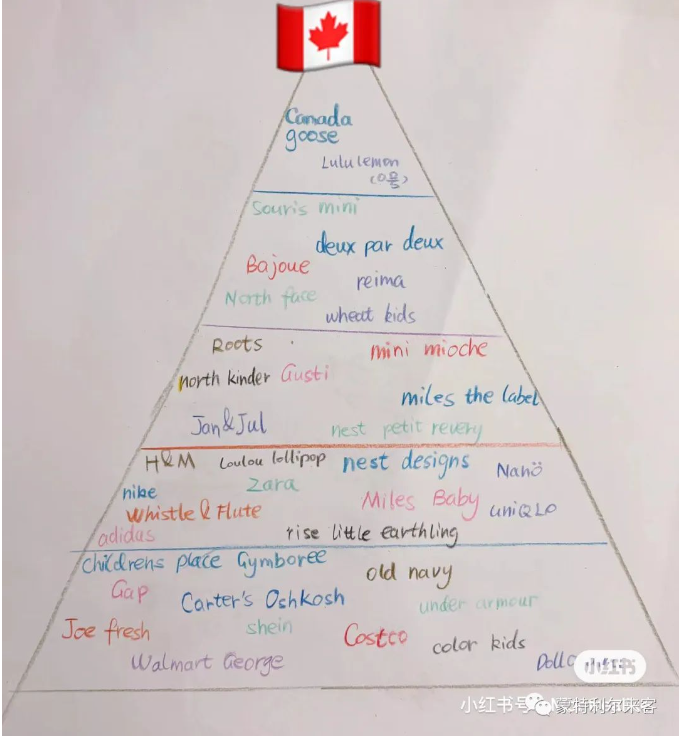 Canada
goose
Lululemon
Souris mini
deux par deux
Bajoue
reima
North face
wheat kids
Roots
mini mioche
north kinder Gusti
miles the label
Jan&Jul
nest petit revery
H&M Loulou lollipop nest designs Nanö
nike Zara
Miles Baby uniQLO
Whistle & Flute
adidas rise little earthling
childrens place Gymboree
old navy
Gap Carter's Oshkosh
under armour
Joe fresh shein Costco color kids
Walmart George
小红书
小红书号
蒙特利尔来客